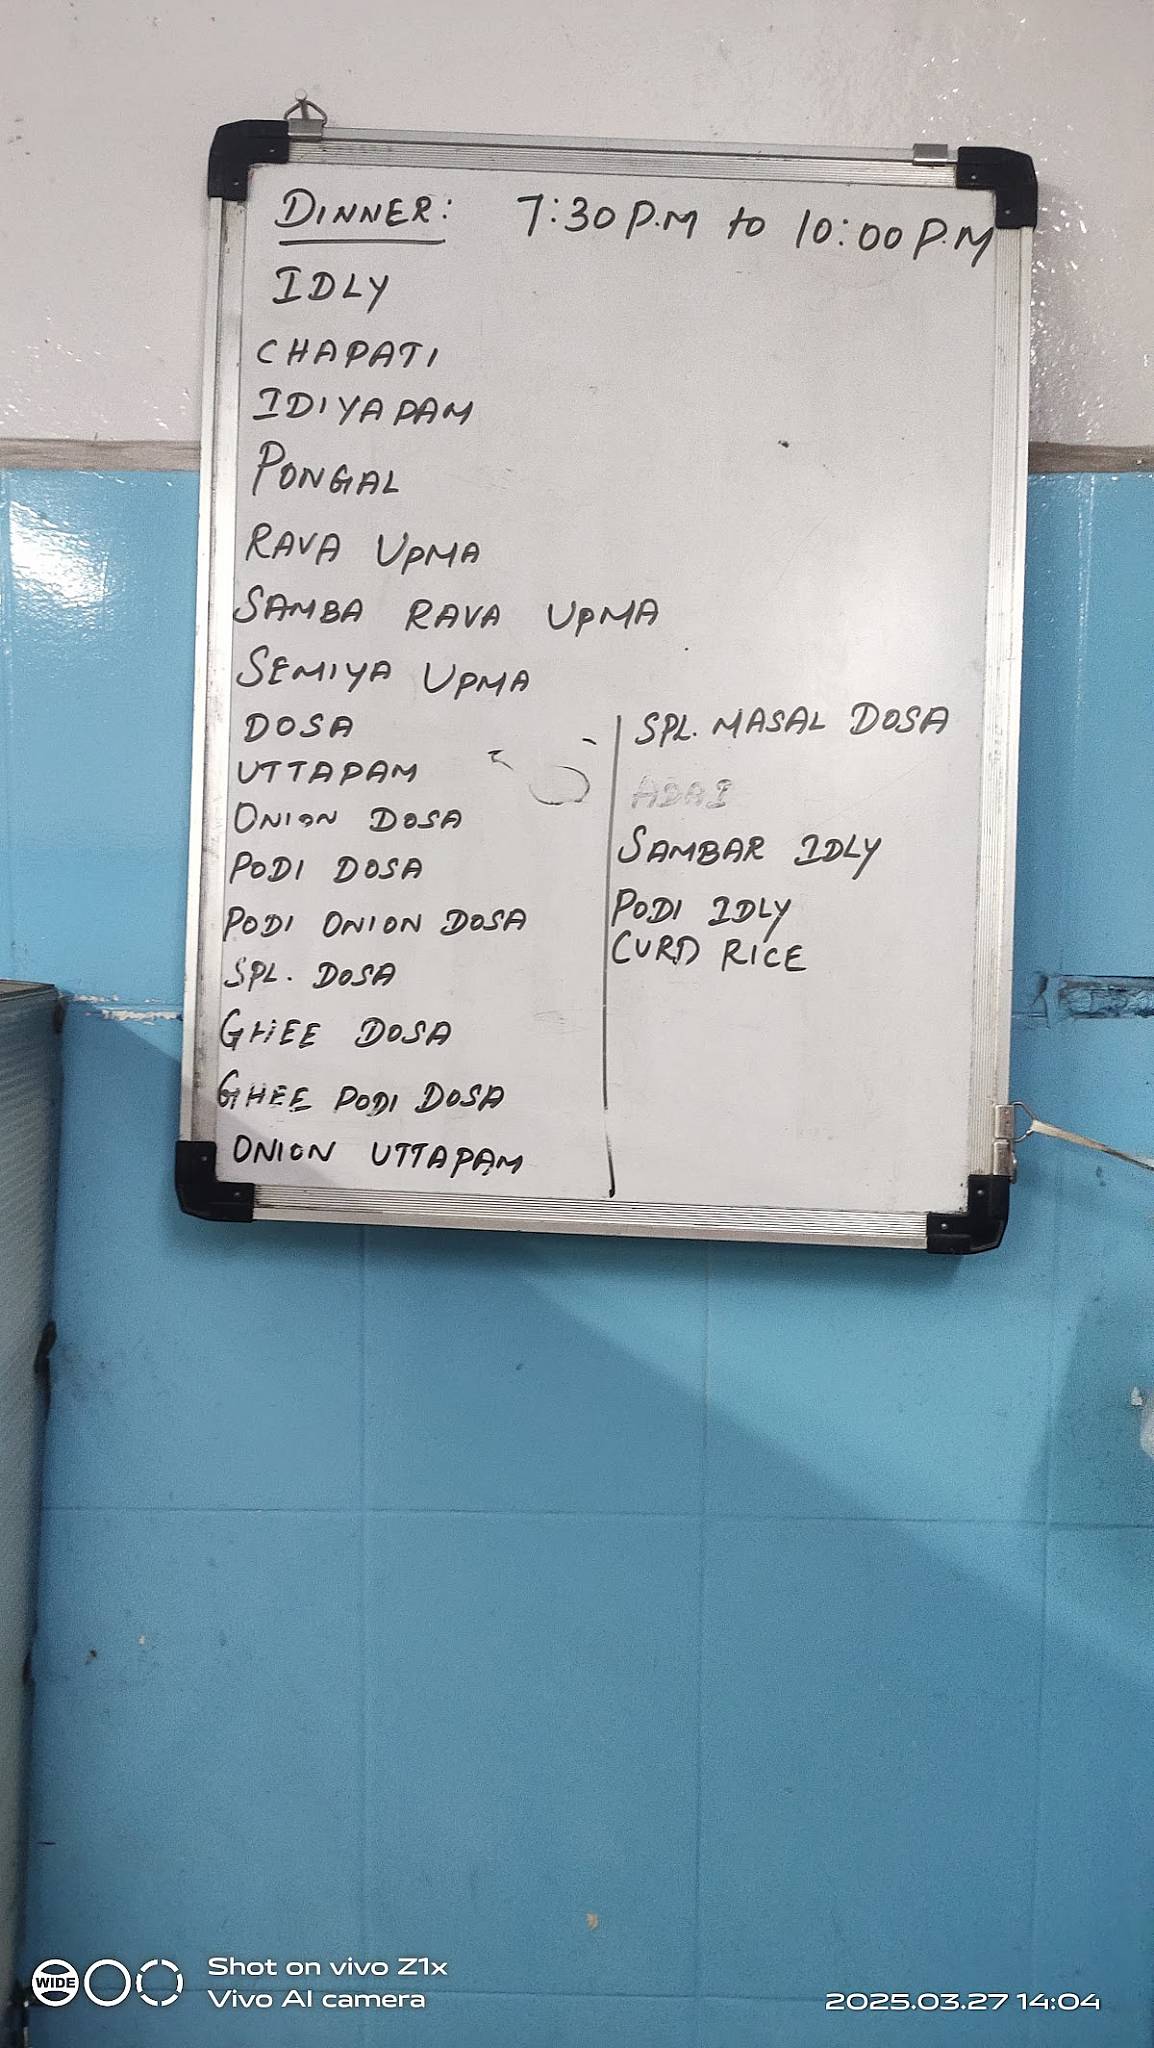 DINNER: 7:30 P.M to 10:00 P.M
IDLY
CHAPATI
IDIYAPAM
PONGAL
RAVA UPMA
SAMBA RAVA UPMA
SEMIYA UPMA
DOSA
UTTAPAM
ONION DOSA
PODI DOSA
PODI ONION DOSA
SPL. DOSA
GHEE DOSA
GHEE PODI DOSA
ONION UTTAPAM
SPL. MASAL DOSA
ADAI
SAMBAR IDLY
PODI IDLY
CURD RICE
WIDE
Shot on vivo Z1x
Vivo AI camera
2025.03.27 14:04